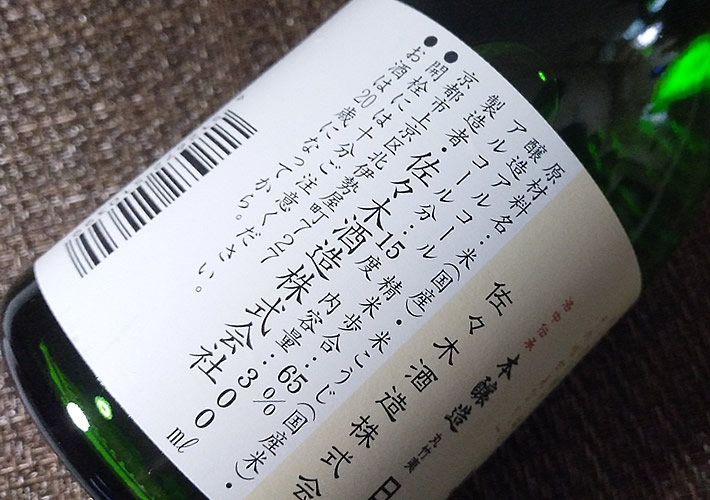 洛中伝承
本醸造
丸竹夷
佐々木酒造株式会
原材料名：米(国産)・米こうじ(国産米)・
醸造アルコール
アルコール分：15度 精米歩合：65%
内容量：300ml
製造者・佐々木酒造株式会社
京都市上京区北伊勢屋町727
●開栓には十分ご注意ください。
●お酒は20歳になってから。